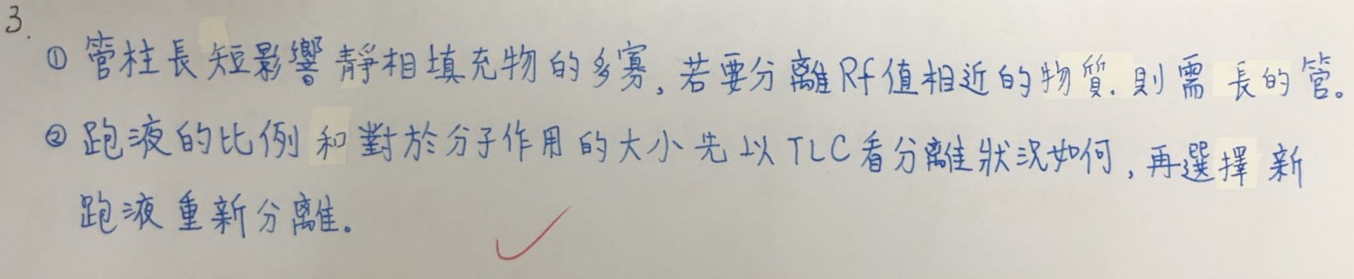 3.
① 管柱長短影響靜相填充物的多寡,若要分離Rf值相近的物質.則需長的管。
② 跑液的比例和對於分子作用的大小先以TLC看分離狀況如何,再選擇新
跑液重新分離。